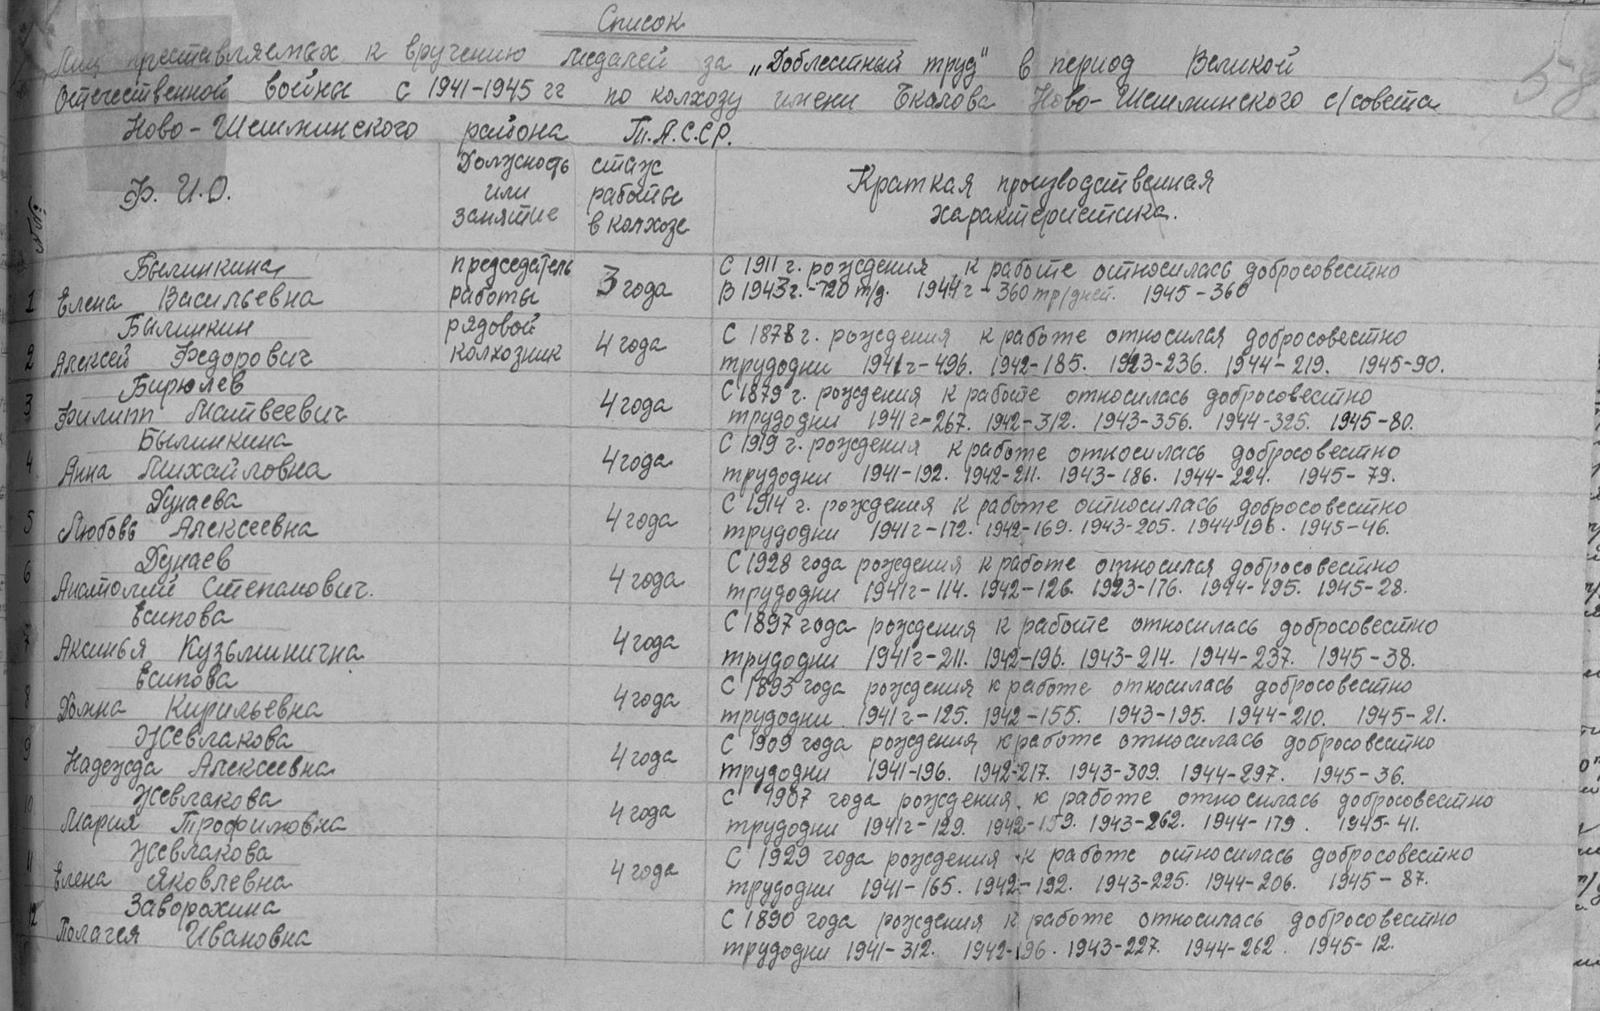 Список
Лиц представляемых к вручению медалей за „Доблестный труд" в период Великой
Отечественной войны с 1941-1945 гг по колхозу имени Чкалова Ново-Шешминского с/совета
Ново-Шешминского района Т.А.С.С.Р.
Ф. И.О. Должность или занятие стаж работы в колхозе Краткая производственная характеристика.
Былинкина председатель 3 года С 1911 г. рождения к работе относилась добросовестно
1 Елена Васильевна работы В 1943 г. - 720 т/д. 1944 г - 360 тр/дней. 1945 - 360
Былинкин рядовой 4 года С 1878 г. рождения к работе относился добросовестно
2 Алексей Федорович колхозник трудодни 1941 г - 496. 1942-185. 1943-236. 1944-219. 1945-90.
Бирюлев 4 года С 1879 г. рождения к работе относилась добросовестно
3 Филипп Матвеевич трудодни 1941 г - 267. 1942-312. 1943-356. 1944-325. 1945-80.
Былинкина 4 года С 1919 г. рождения к работе относилась добросовестно
4 Анна Михайловна трудодни 1941-192. 1942-211. 1943-186. 1944-224. 1945-79.
Дунаева 4 года С 1914 г. рождения к работе относилась добросовестно
5 Любовь Алексеевна трудодни 1941 г - 172. 1942-169. 1943-205. 1944-196. 1945-46.
Дунаев 4 года С 1928 года рождения к работе относился добросовестно
6 Анатолий Степанович. трудодни 1941 г - 114. 1942-126. 1943-176. 1944-195. 1945-28.
Есипова 4 года С 1897 года рождения к работе относилась добросовестно
7 Аксинья Кузьминична трудодни 1941 г - 211. 1942-196. 1943-214. 1944-237. 1945-38.
Есипова 4 года С 1893 года рождения к работе относилась добросовестно
8 Домна Кирильевна трудодни 1941 г - 125. 1942-155. 1943-195. 1944-210. 1945-21.
Жевлакова 4 года С 1909 года рождения к работе относилась добросовестно
9 Надежда Алексеевна трудодни 1941-196. 1942-217. 1943-309. 1944-297. 1945-36.
Жевлакова 4 года С 1907 года рождения к работе относилась добросовестно
10 Мария Трофимовна трудодни 1941 г - 129. 1942-159. 1943-262. 1944-179. 1945-41.
Жевлакова 4 года С 1929 года рождения к работе относилась добросовестно
11 Елена Яковлевна трудодни 1941-165. 1942-192. 1943-225. 1944-206. 1945-87.
Заворохина С 1890 года рождения к работе относилась добросовестно
12 Полагея Ивановна трудодни 1941-312. 1942-196. 1943-227. 1944-262. 1945-12.